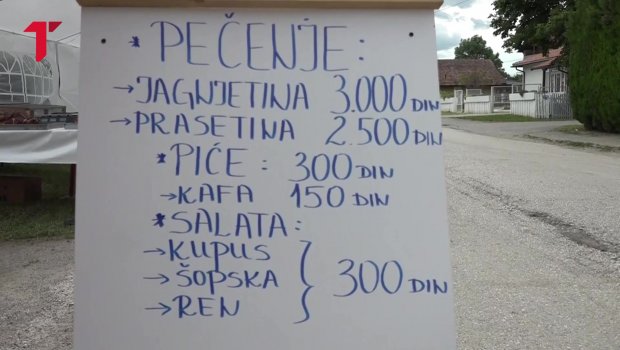 * PEČENJE:
→JAGNJETINA 3.000 DIN
→PRASETINA 2.500 DIN
* PIĆE: 300 DIN
→KAFA 150 DIN
* SALATA:
→KUPUS
→ŠOPSKA } 300 DIN
→REN